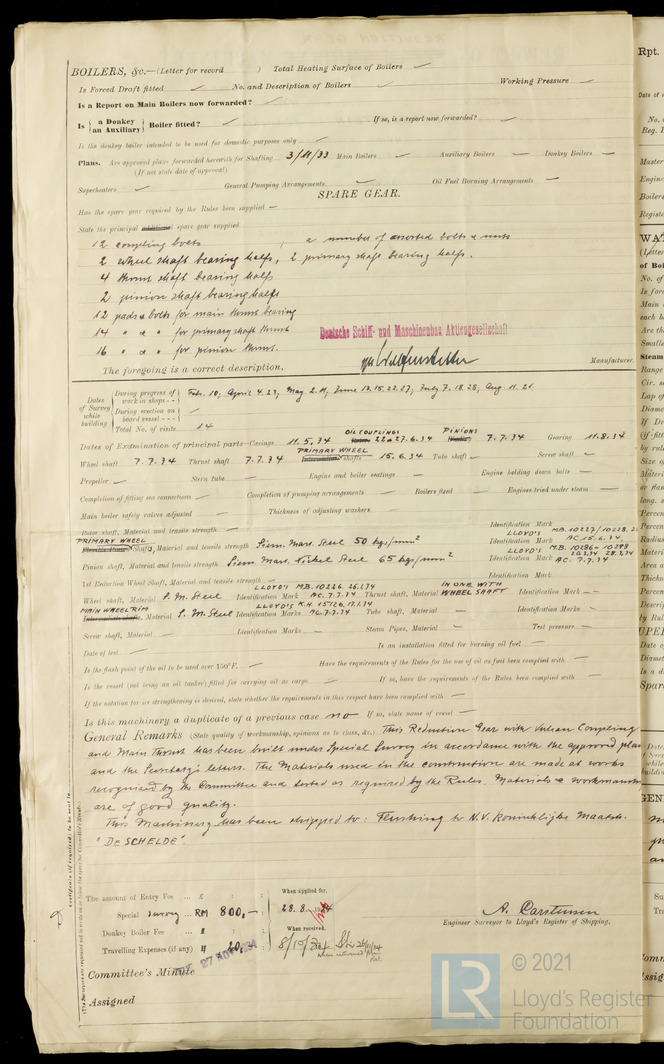 BOILERS, &c.—(Letter for record ) Total Heating Surface of Boilers
Is Forced Draft fitted No. and Description of Boilers Working Pressure
Is a Report on Main Boilers now forwarded?
Is {a Donkey / an Auxiliary} Boiler fitted? If so, is a report now forwarded?
Is the donkey boiler intended to be used for domestic purposes only
Plans. Are approved plans forwarded herewith for Shafting 3/11/33 Main Boilers Auxiliary Boilers — Donkey Boilers —
(If not state date of approval)
Superheaters General Pumping Arrangements Oil Fuel Burning Arrangements —
SPARE GEAR.
Has the spare gear required by the Rules been supplied —
State the principal additional spare gear supplied
12 coupling bolts, a number of assorted bolts & nuts
2 wheel shaft bearing halfs, 2 primary shaft bearing halfs.
4 thrust shaft bearing halfs
2 pinion shaft bearing halfs
12 pads & bolts for main thrust bearing
14 " " " for primary shaft thrust
16 " " " for pinion thrust.
Deutsche Schiff- und Maschinenbau Aktiengesellschaft
The foregoing is a correct description, Manufacturer.
Dates of Survey while building
During progress of work in shops - - Feb. 10, April 4. 23, May 2. 11, June 13. 15. 22. 27, July 7. 18. 28, Aug. 11. 21.
During erection on board vessel - - -
Total No. of visits 14
OIL COUPLINGS PINIONS
Dates of Examination of principal parts—Casings 11.5.34 22 & 27.6.34 7.7.34 Gearing 11.8.34
PRIMARY WHEEL
Wheel shaft 7.7.34 Thrust shaft 7.7.34 Intermediate shafts 15.6.34 Tube shaft — Screw shaft —
Propeller — Stern tube — Engine and boiler seatings — Engine holding down bolts —
Completion of fitting sea connections — Completion of pumping arrangements — Boilers fixed — Engines tried under steam —
Main boiler safety valves adjusted — Thickness of adjusting washers
Rotor shaft, Material and tensile strength — Identification Mark
PRIMARY WHEEL LLOYD'S M.B. 10227/10228.
Shafts, Material and tensile strength Siem. Mart. Steel 50 kgs/mm² Identification Mark AC. 15.6.34
LLOYD'S M.B. 10286-10249
Pinion shaft, Material and tensile strength Siem. Mart. Nickel Steel 65 kgs/mm² Identification Mark AC. 7.7.34
1st Reduction Wheel Shaft, Material and tensile strength — Identification Mark
LLOYD'S M.B. 10226. 26.1.34 IN ONE WITH
Wheel shaft, Material S.M. Steel Identification Mark AC. 7.7.34 Thrust shaft, Material WHEEL SHAFT Identification Mark —
MAIN WHEELRIM LLOYD'S
Intermediate shafts, Material S.M. Steel Identification Marks AC. 7.7.34 Tube shaft, Material — Identification Marks —
Screw shaft, Material — Identification Marks — Steam Pipes, Material — Test pressure —
Date of test — Is an installation fitted for burning oil fuel —
Is the flash point of the oil to be used over 150°F. — Have the requirements of the Rules for the use of oil as fuel been complied with —
Is the vessel (not being an oil tanker) fitted for carrying oil as cargo — If so, have the requirements of the Rules been complied with —
If the notation for ice strengthening is desired, state whether the requirements in this respect have been complied with —
Is this machinery a duplicate of a previous case no If so, state name of vessel —
General Remarks (State quality of workmanship, opinions as to class, &c.) This Reduction Gear with Vulcan Coupling
and Main Thrust has been built under Special Survey in accordance with the approved plan
and the Secretary's letters. The Materials used in the construction are made at works
recognised by the Committee and tested as required by the Rules. Materials & workmanship
are of good quality.
This Machinery has been shipped to: Flushing to N.V. Koninklijke Maatsch.
"DE SCHELDE".
The amount of Entry Fee ... £ : : When applied for.
Special Survey ... RM 800,— 28.8.1934
Donkey Boiler Fee ... £ : : When received.
Travelling Expenses (if any) 8/10/34
A. Carstensen
Engineer Surveyor to Lloyd's Register of Shipping.
Committee's Minute TUE. 27 NOV 1934
Assigned
© 2021
LR Lloyd's Register
Foundation
Rpt.